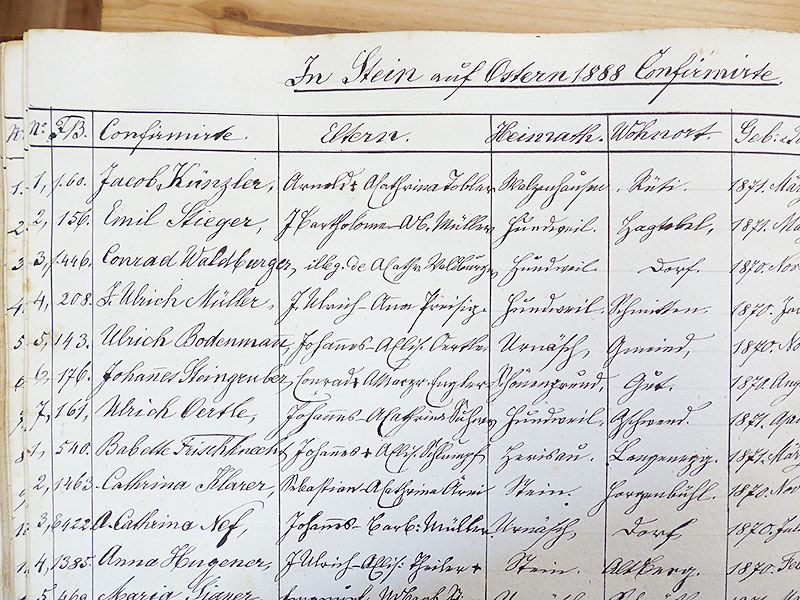 In Stein auf Ostern 1888 Confirmirte.
N. No. FB. Confirmirte. Eltern. Heimath. Wohnort. Geb:
1. 1, f.60. Jacob Künzler, Arnold & A Cathrina Tobler Walzenhausen, Rüti. 1871. März
2. 2, 156. Emil Stieger, J Bartholome - Müller Hundweil. Hagtobel, 1871.
3. 3, f.446. Conrad Waldburger, illeg. de A Cath. Waldburger Hundweil Dorf. 1870. Nov
4. 4, 208. J. Ulrich Müller, J Ulrich - Anna Preisig. Hundweil. Schmitten. 1870.
5. 5, 143. Ulrich Bodenmann, Johannes - A Elis. Oertle Urnäsch, Gmeind, 1870. No
6. 6, 176. Johannes Steingruber, Conrad & A Marg. Engler Schönengrund, Gut. 1870. Aug
7. 7, 161, Ulrich Oertle, Johannes - A Cathrina Hundweil, Gschwend. 1871. Apr
8. 1, 540. Babette Frischknecht Johannes & A Elis. Schlumpf Herisau. Langenegg. 1871. März
9. 2, 1463 Cathrina Klarer, Sebastian - A Cathrina Stein. Horgenbühl. 1870. Nov
10. 3, A. Cathrina Nef, Johannes - Barb: Müller. Urnäsch, Dorf 1870.
11. 4, 1385. Anna Hugener, J Ulrich - A Elis: Theiler & Stein. Altberg. 1870. Fe
5. Maria